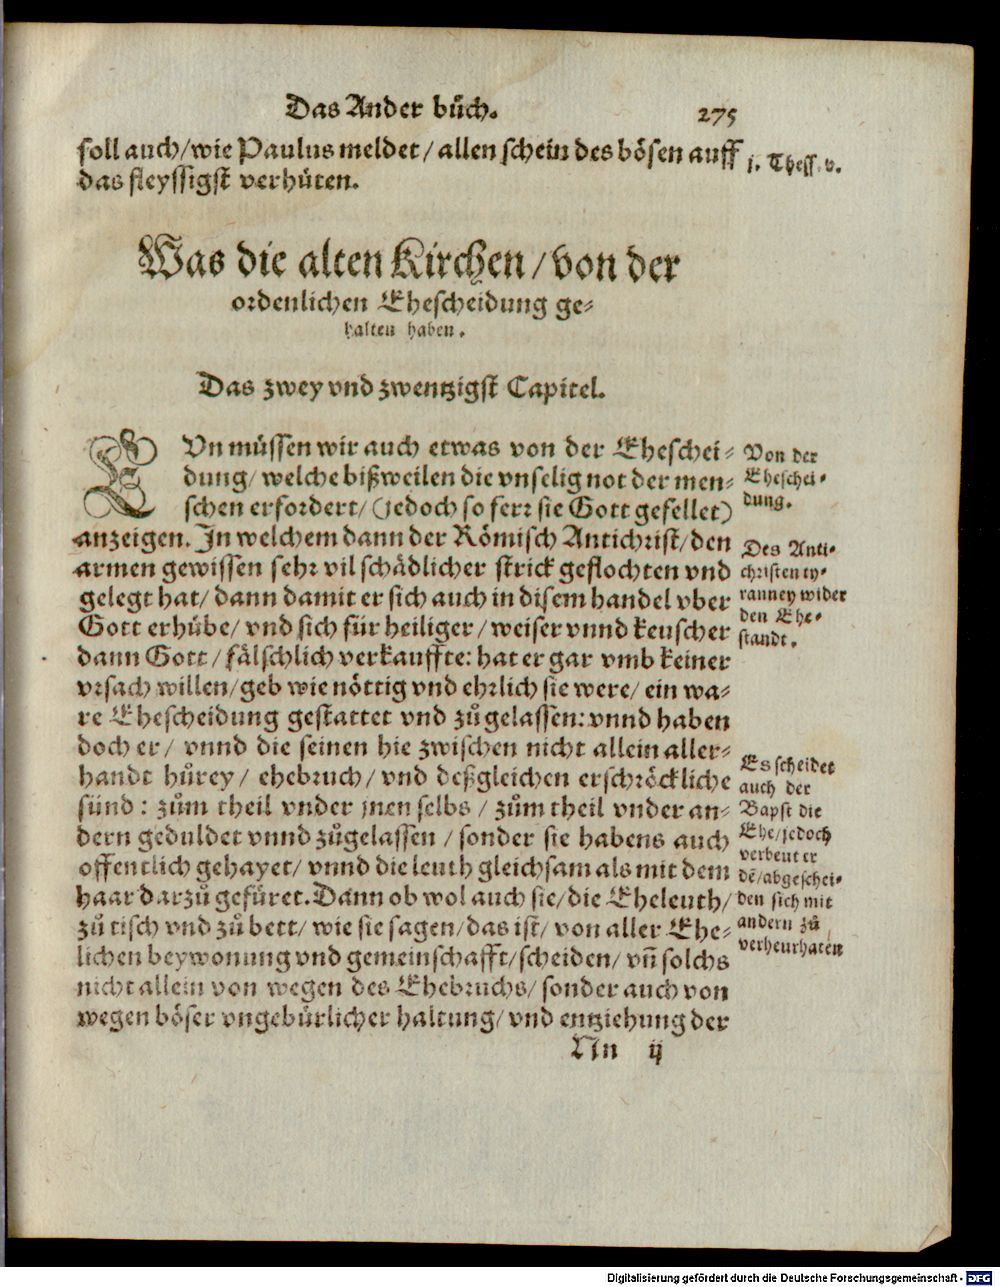 Das Ander bůch. 275
soll auch/wie Paulus meldet/allen schein des bösen auff
das fleyssigst verhüten.
j. Thess. v.
Was die alten Kirchen/von der
ordenlichen Ehescheidung ge-
halten haben.
Das zwey vnd zwentzigst Capitel.
NUn müssen wir auch etwas von der Eheschei-
dung/welche bißweilen die vnselig not der men-
schen erfordert/(jedoch so ferr sie Gott gefellet)
anzeigen. In welchem dann der Römisch Antichrist/den
armen gewissen sehr vil schädlicher strick geflochten vnd
gelegt hat/dann damit er sich auch in disem handel vber
Gott erhübe/vnd sich für heiliger/weiser vnnd keuscher
dann Gott/fälschlich verkauffte: hat er gar vmb keiner
vrsach willen/geb wie nöttig vnd ehrlich sie were/ein wa-
re Ehescheidung gestattet vnd zůgelassen: vnnd haben
doch er/vnnd die seinen hie zwischen nicht allein aller-
handt hůrey/ehebruch/vnd deßgleichen erschröckliche
sünd: zům theil vnder jnen selbs/zům theil vnder an-
dern geduldet vnnd zůgelassen/sonder sie habens auch
offentlich gehayet/vnnd die leuth gleichsam als mit dem
haar darzů gefüret. Dann ob wol auch sie/die Eheleuth/
zů tisch vnd zů bett/wie sie sagen/das ist/von aller Ehe-
lichen beywonung vnd gemeinschafft/scheiden/vñ solchs
nicht allein von wegen des Ehebruchs/sonder auch von
wegen böser vngebürlicher haltung/vnd entziehung der
Nn ij
Von der
Eheschei-
dung.
Des Anti-
christen ty-
ranney wider
den Ehe-
standt.
Es scheidet
auch der
Bapst die
Ehe/jedoch
verbeut er
dẽ/abgeschei-
den sich mit
andern zů
verheurhaten
Digitalisierung gefördert durch die Deutsche Forschungsgemeinschaft - DFG